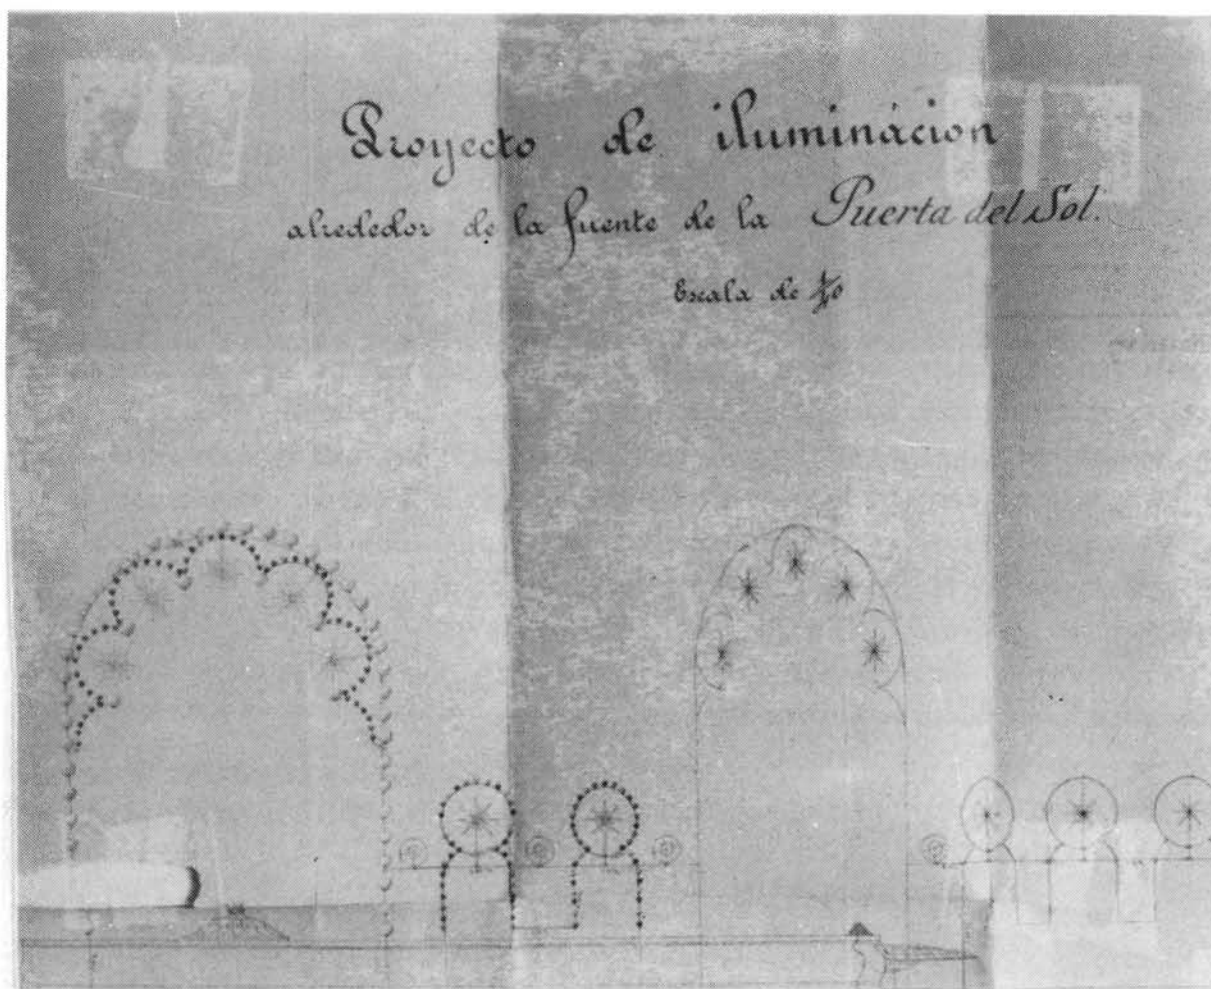 Proyecto de iluminácion
alrededor de la fuente de la Puerta del Sol.
Escala de